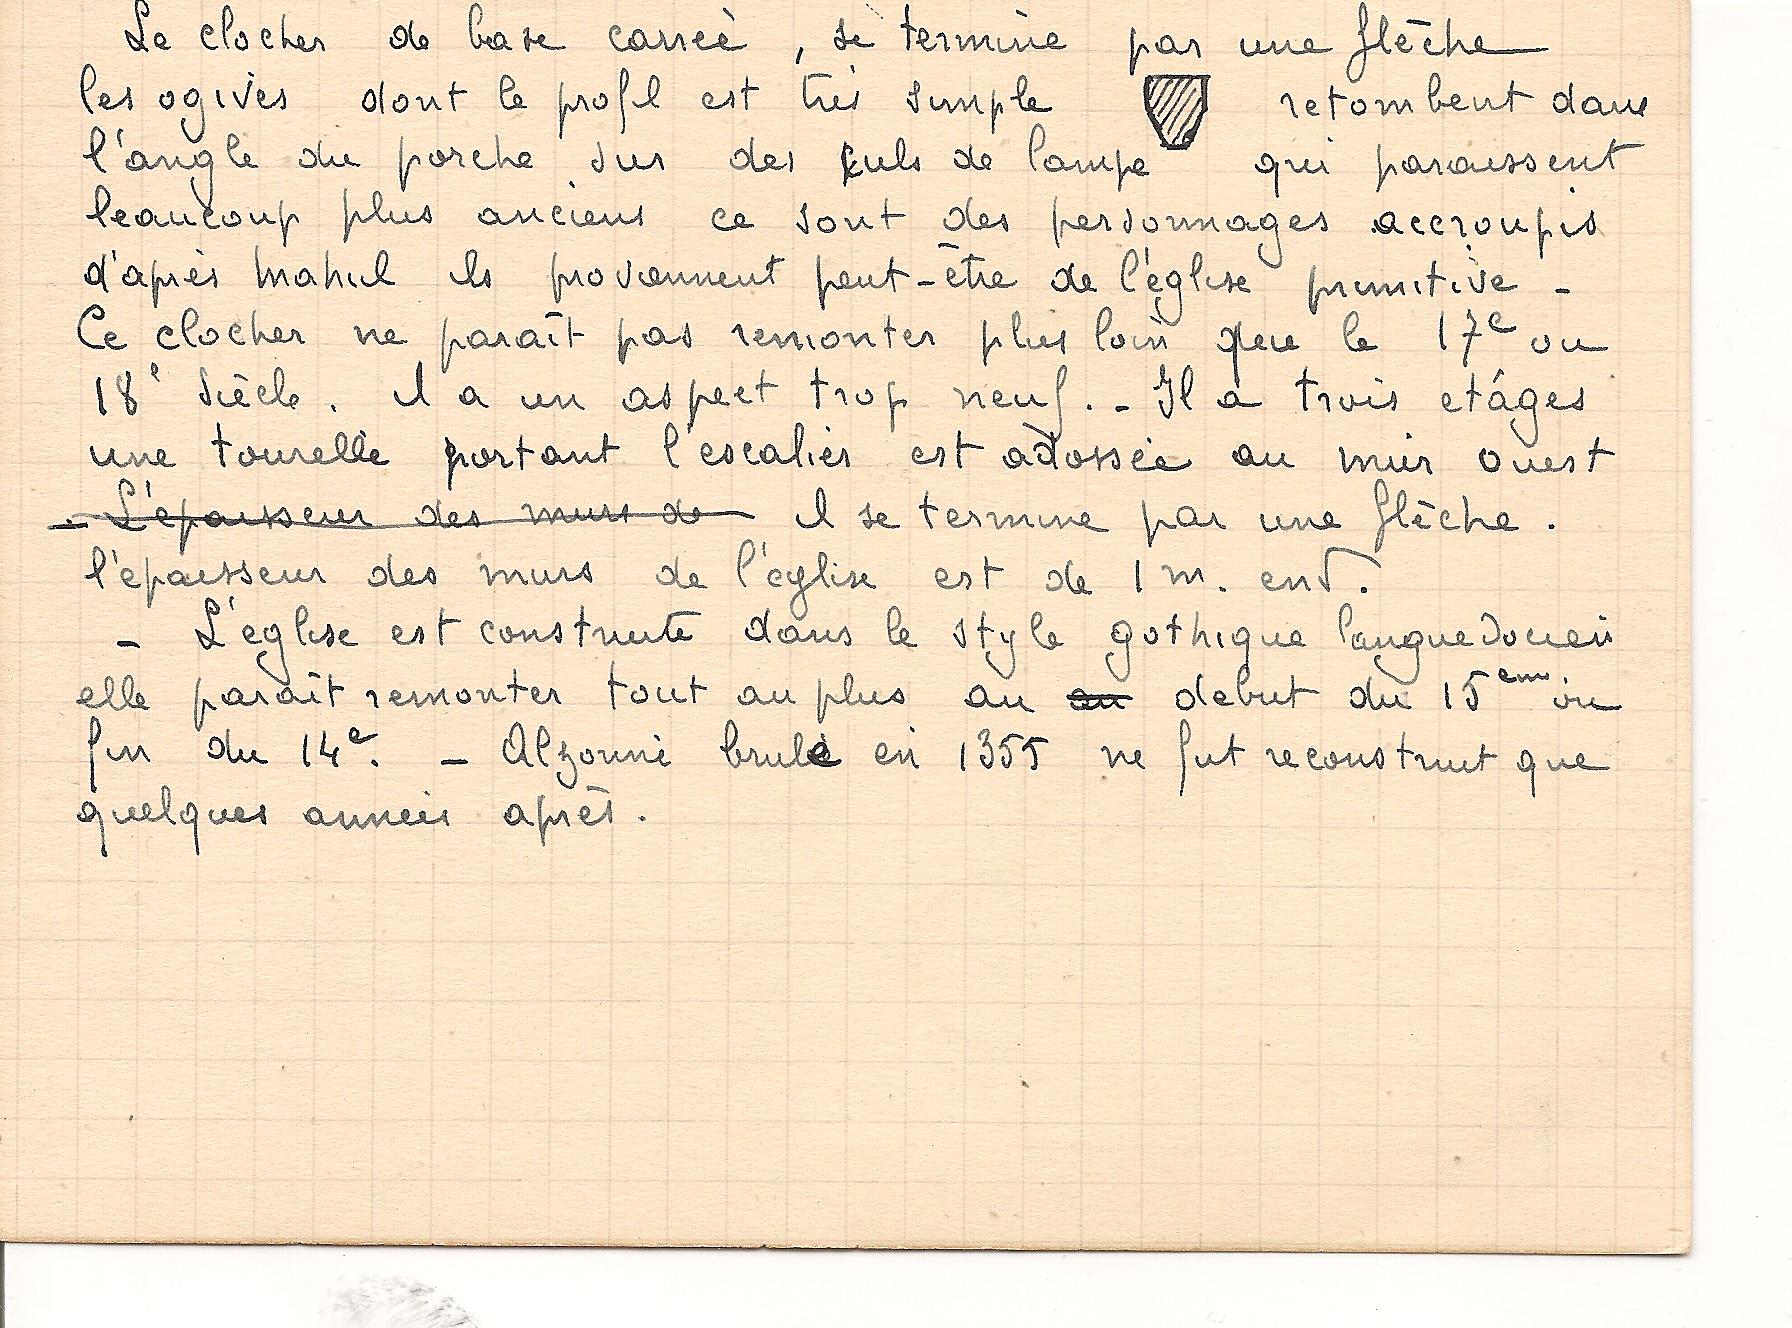 Le clocher de base carrée, se termine par une flèche
les ogives dont le profil est très simple retombent dans
l'angle du porche sur des culs de lampe qui paraissent
beaucoup plus anciens ce sont des personnages accroupis
d'après Mahul ils proviennent peut-être de l'église primitive -
Ce clocher ne paraît pas remonter plus loin que le 17e ou
18e siècle. il a un aspect trop neuf. - Il a trois etages
une tourelle portant l'escalier est adossée au mur ouest
- L'épaisseur des murs de il se termine par une flèche.
l'épaisseur des murs de l'église est de 1 m. env.
- L'église est construite dans le style gothique languedocien
elle paraît remonter tout au plus au au debut du 15eme ou
fin du 14e. - Alzonne brulé en 1355 ne fut reconstruit que
quelques années après.